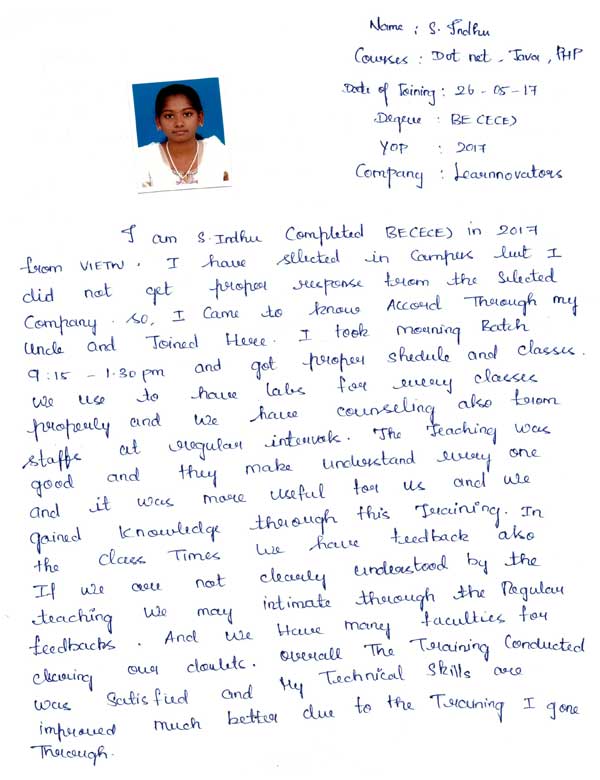 Name : S. Indhu
Courses : Dot net, Java, PHP
Date of Joining : 26-05-17
Degree : BE(ECE)
YOP : 2017
Company : Learnnovators
I am S. Indhu Completed BE(ECE) in 2017
from VIETW. I have sllected in Campus but I
did not get proper response from the Selected
Company. So, I Came to know Accord Through my
Uncle and Joined Here. I took morning Batch
9:15 - 1.30 pm and got proper shedule and classes.
We use to have labs for every classes
properly and we have counseling also from
staffs at regular intervals. The Teaching was
good and they make understand every one
and it was more useful for us and we
gained knowledge through this Training. In
the class Times we have feedback also
If we are not clearly understood by the
teaching we may intimate through the Regular
feedbacks. And we Have many faculties for
clearing our doubts. Overall The Training Conducted
was Satisfied and My Technical Skills are
improved much better due to the Training I gone
Through.